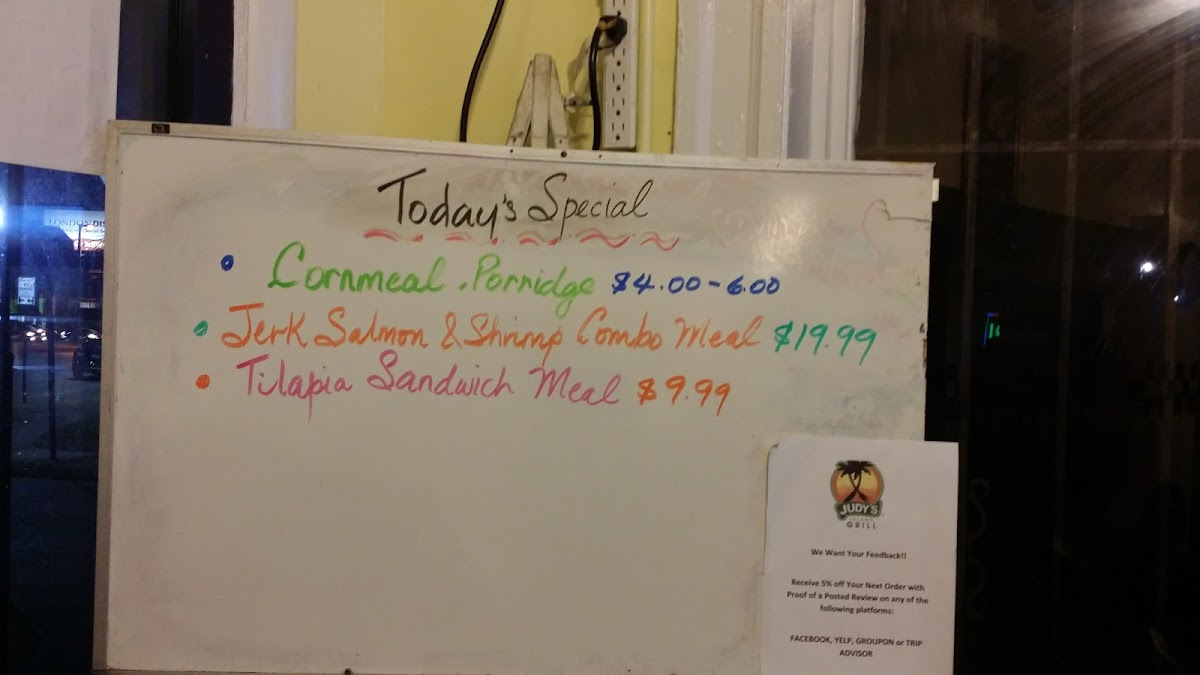 Today's Special
Cornmeal Porridge $4.00-6.00
Jerk Salmon & Shrimp Combo Meal $19.99
Tilapia Sandwich Meal $9.99
LONDON DIS
JUDY'S
ISLAND
GRILL
We Want Your Feedback!!
Receive 5% off Your Next Order with
Proof of a Posted Review on any of the
following platforms:
FACEBOOK, YELP, GROUPON or TRIP
ADVISOR